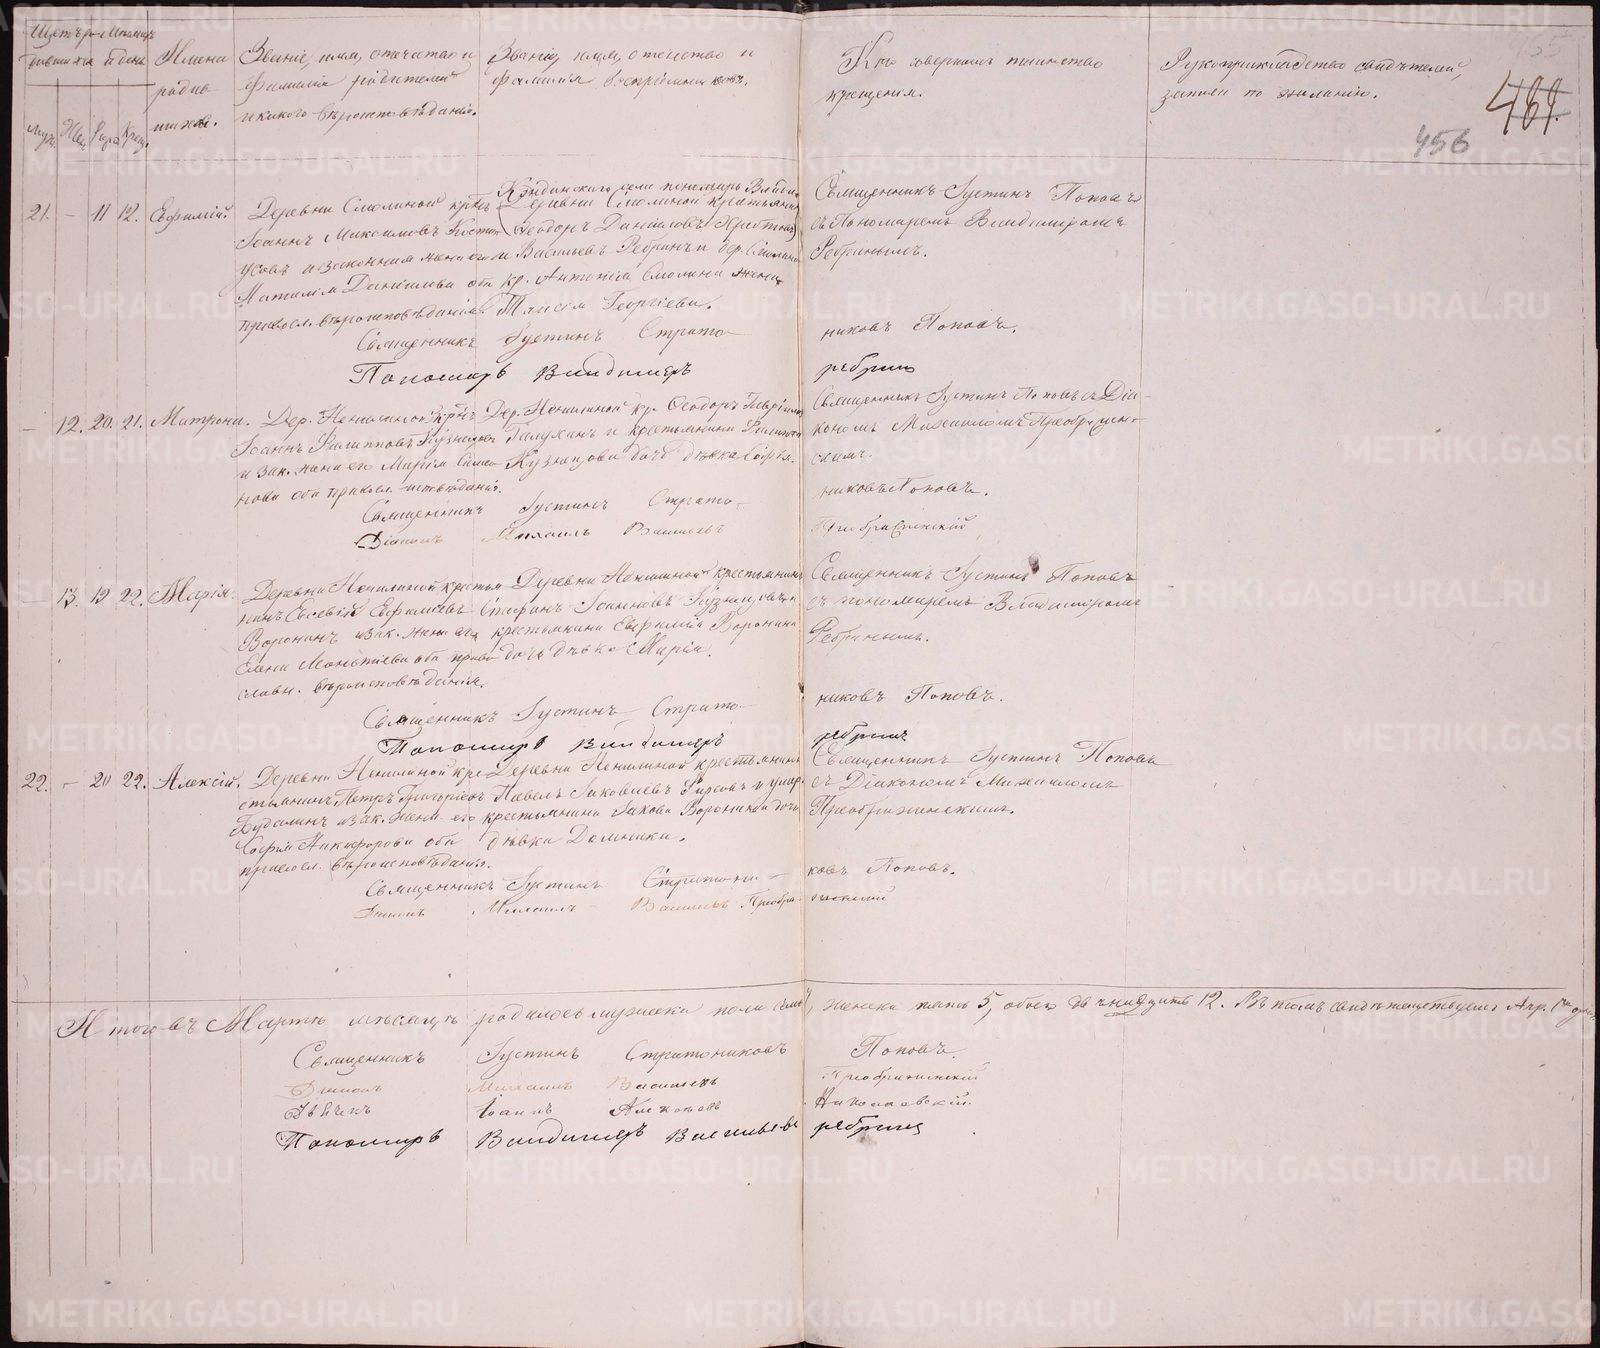 Счетъ ро- Мѣсяцъ
дившихся и день
муж. Жен. Рожд. Крещ.
Имена
родив
шихся.
Званіе, имя, отчество и
фамилія родителей
и какого вѣроисповѣданія.
Званіе, имя, отчество и
фамилія воспріемниковъ.
Кто совершалъ таинство
крещенія.
Рукоприкладство свидѣтелей
записи по желанію.
455
481.
456
21. — 11 12. Евфимій.
Деревни Смолиной крѣс
Іоаннъ Максимовъ Косты
усовъ и законная жена его
Наталія Даніилова оба
правосл. вѣроисповѣданія.
села пономарь Влади
(Деревни Смолиной крестьянин
Ѳеодоръ Даніиловъ
Васильевъ Ребринъ и дер. Смолино
кр. Антонія Смолина жена
Таисія Георгіева.
Священникъ Іустинъ Попов
съ Пономаремъ Владиміромъ
Ребринымъ.
Священникъ Іустинъ Страто
никовъ Поповъ.
Пономарь Владимеръ
ребринъ
— 12. 20. 21. Матрона.
Іоаннъ Филипповъ Кузнецовъ
и зак. жена его Марія Симео
нова оба правосл. исповѣданія.
кр. Ѳеодоръ Гавріилов
и крестьянина Филиппа
Кузнецова дочь дѣвка Софія.
Священникъ Іустинъ Поповъ съ Діа-
кономъ Михаиломъ Преображен-
скимъ.
Священникъ Іустинъ Страто-
никовъ Поповъ.
Діаконъ Михаилъ Васильевъ
Преображенскій
13. 19 22. Марія.
Евсевій Евфиміевъ
Воронинъ и зак. жена его
Елена Леонтіева оба право
славн. вѣроисповѣданія.
крестьянинъ
Стефанъ Іоанновъ Кузнецовъ и
крестьянина Евфимія Воронина
дочь дѣвка Марія.
Священникъ Іустинъ Поповъ
съ пономаремъ Владиміромъ
Ребринымъ.
Священникъ Іустинъ Страто-
никовъ Поповъ.
Пономарь Владимеръ
ребринъ
22. — 20 22. Алексій.
стьянинъ Петръ Григоріевъ
и зак. жена его
Софія Никифорова оба
правосл. вѣроисповѣданія.
крестьянинъ
Павелъ Іаковлевъ
крестьянина Іакова Воронина дочь
дѣвка Домника.
Священникъ Іустинъ Поповъ
съ Діакономъ Михаиломъ
Преображенскимъ.
Священникъ Іустинъ Стратони-
ковъ Поповъ.
Діаконъ Михаилъ Васильевъ Преобра-
женскій
Итого въ Мартѣ мѣсяцѣ родилось мужеска пола семь, женска пять 5, обоего двѣнадцать 12. Въ томъ свидѣтельствуемъ Апр.
Священникъ Іустинъ Стратониковъ Поповъ.
Діаконъ Михаилъ Васильевъ Преображенскій
Іоаннъ Алексѣевъ Николаевскій.
Пономарь Владимеръ Васильевъ ребринъ
METRIKI.GASO-URAL.RU